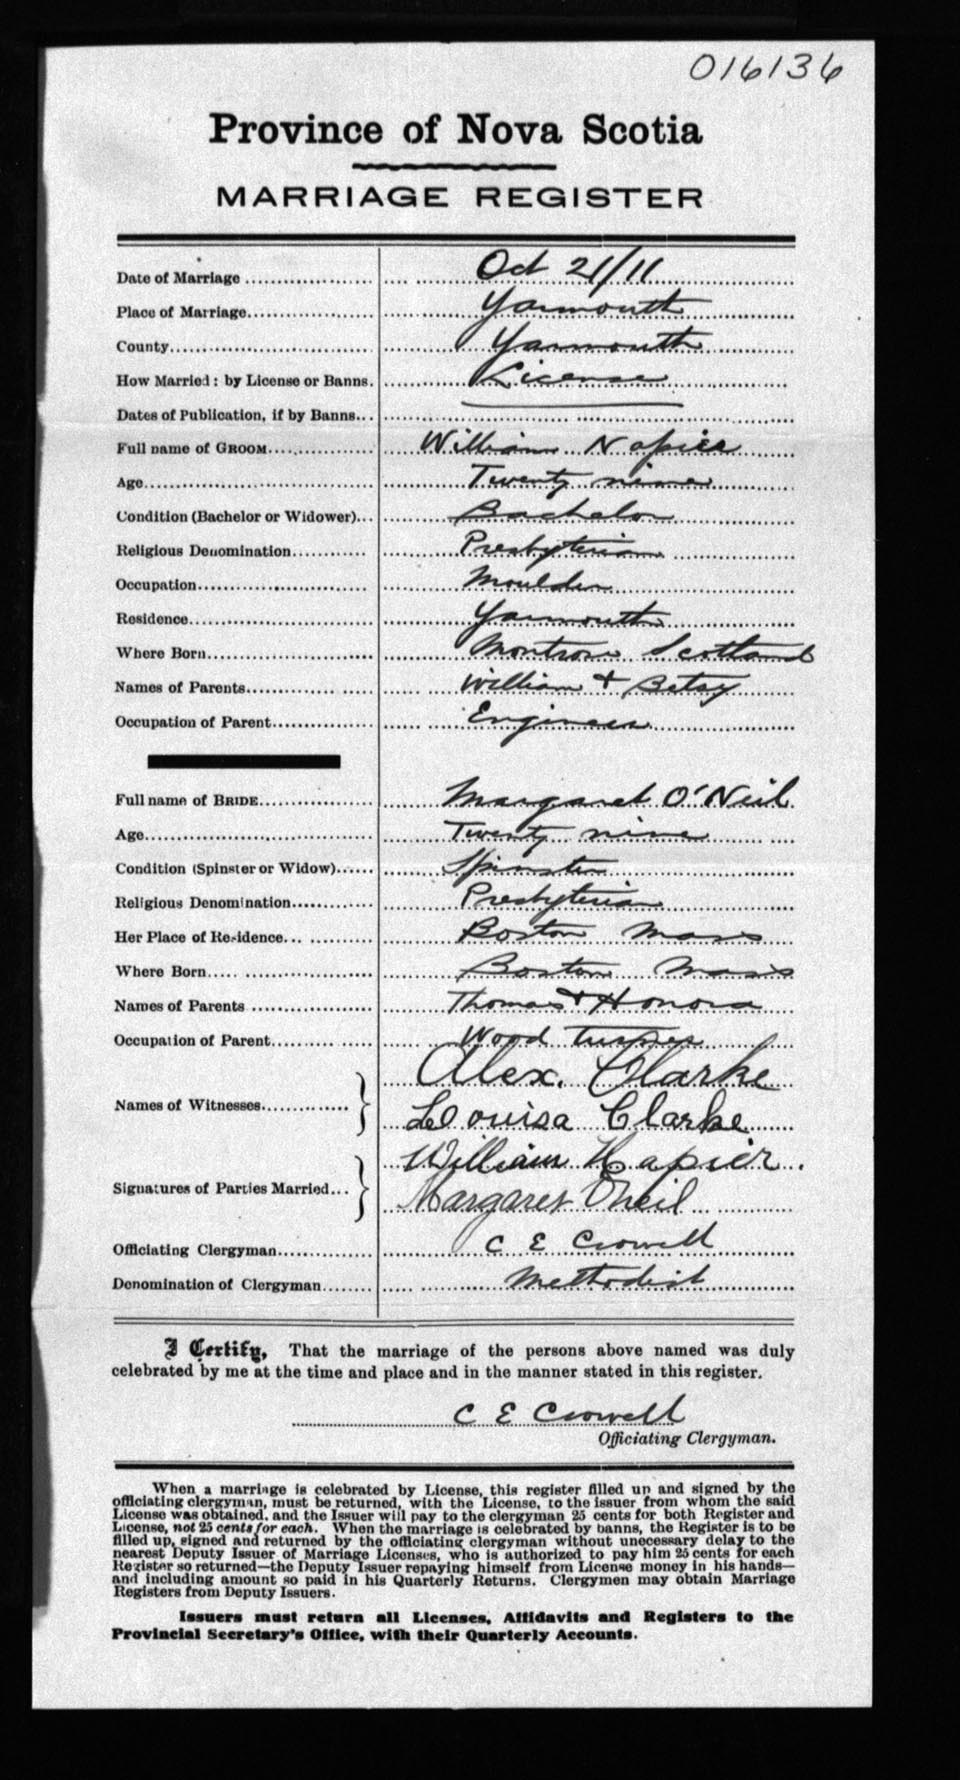 016136
Province of Nova Scotia
MARRIAGE REGISTER
Date of Marriage Oct 21/11
Place of Marriage Yarmouth
County Yarmouth
How Married: by License or Banns. License
Dates of Publication, if by Banns
Full name of GROOM William Napier
Age Twenty nine
Condition (Bachelor or Widower) Bachelor
Religious Denomination Presbyterian
Occupation Moulder
Residence Yarmouth
Where Born Montrose Scotland
Names of Parents William + Betsy
Occupation of Parent Engineer
Full name of BRIDE Margaret O'Neil
Age Twenty nine
Condition (Spinster or Widow) Spinster
Religious Denomination Presbyterian
Her Place of Residence Boston Mass
Where Born Boston Mass
Names of Parents Thomas + Honora
Occupation of Parent Wood turner
Names of Witnesses Alex. Clarke
Louisa Clarke
Signatures of Parties Married William Napier.
Margaret O'Neil
Officiating Clergyman C E Crowell
Denomination of Clergyman Methodist
I Certify, That the marriage of the persons above named was duly
celebrated by me at the time and place and in the manner stated in this register.
C E Crowell
Officiating Clergyman.
When a marriage is celebrated by License, this register filled up and signed by the
officiating clergyman, must be returned, with the License, to the issuer from whom the said
License was obtained, and the Issuer will pay to the clergyman 25 cents for both Register and
License, not 25 cents for each. When the marriage is celebrated by banns, the Register is to be
filled up, signed and returned by the officiating clergyman without unecessary delay to the
nearest Deputy Issuer of Marriage Licenses, who is authorized to pay him 25 cents for each
Register so returned—the Deputy Issuer repaying himself from License money in his hands—
and including amount so paid in his Quarterly Returns. Clergymen may obtain Marriage
Registers from Deputy Issuers.
Issuers must return all Licenses, Affidavits and Registers to the
Provincial Secretary's Office, with their Quarterly Accounts.